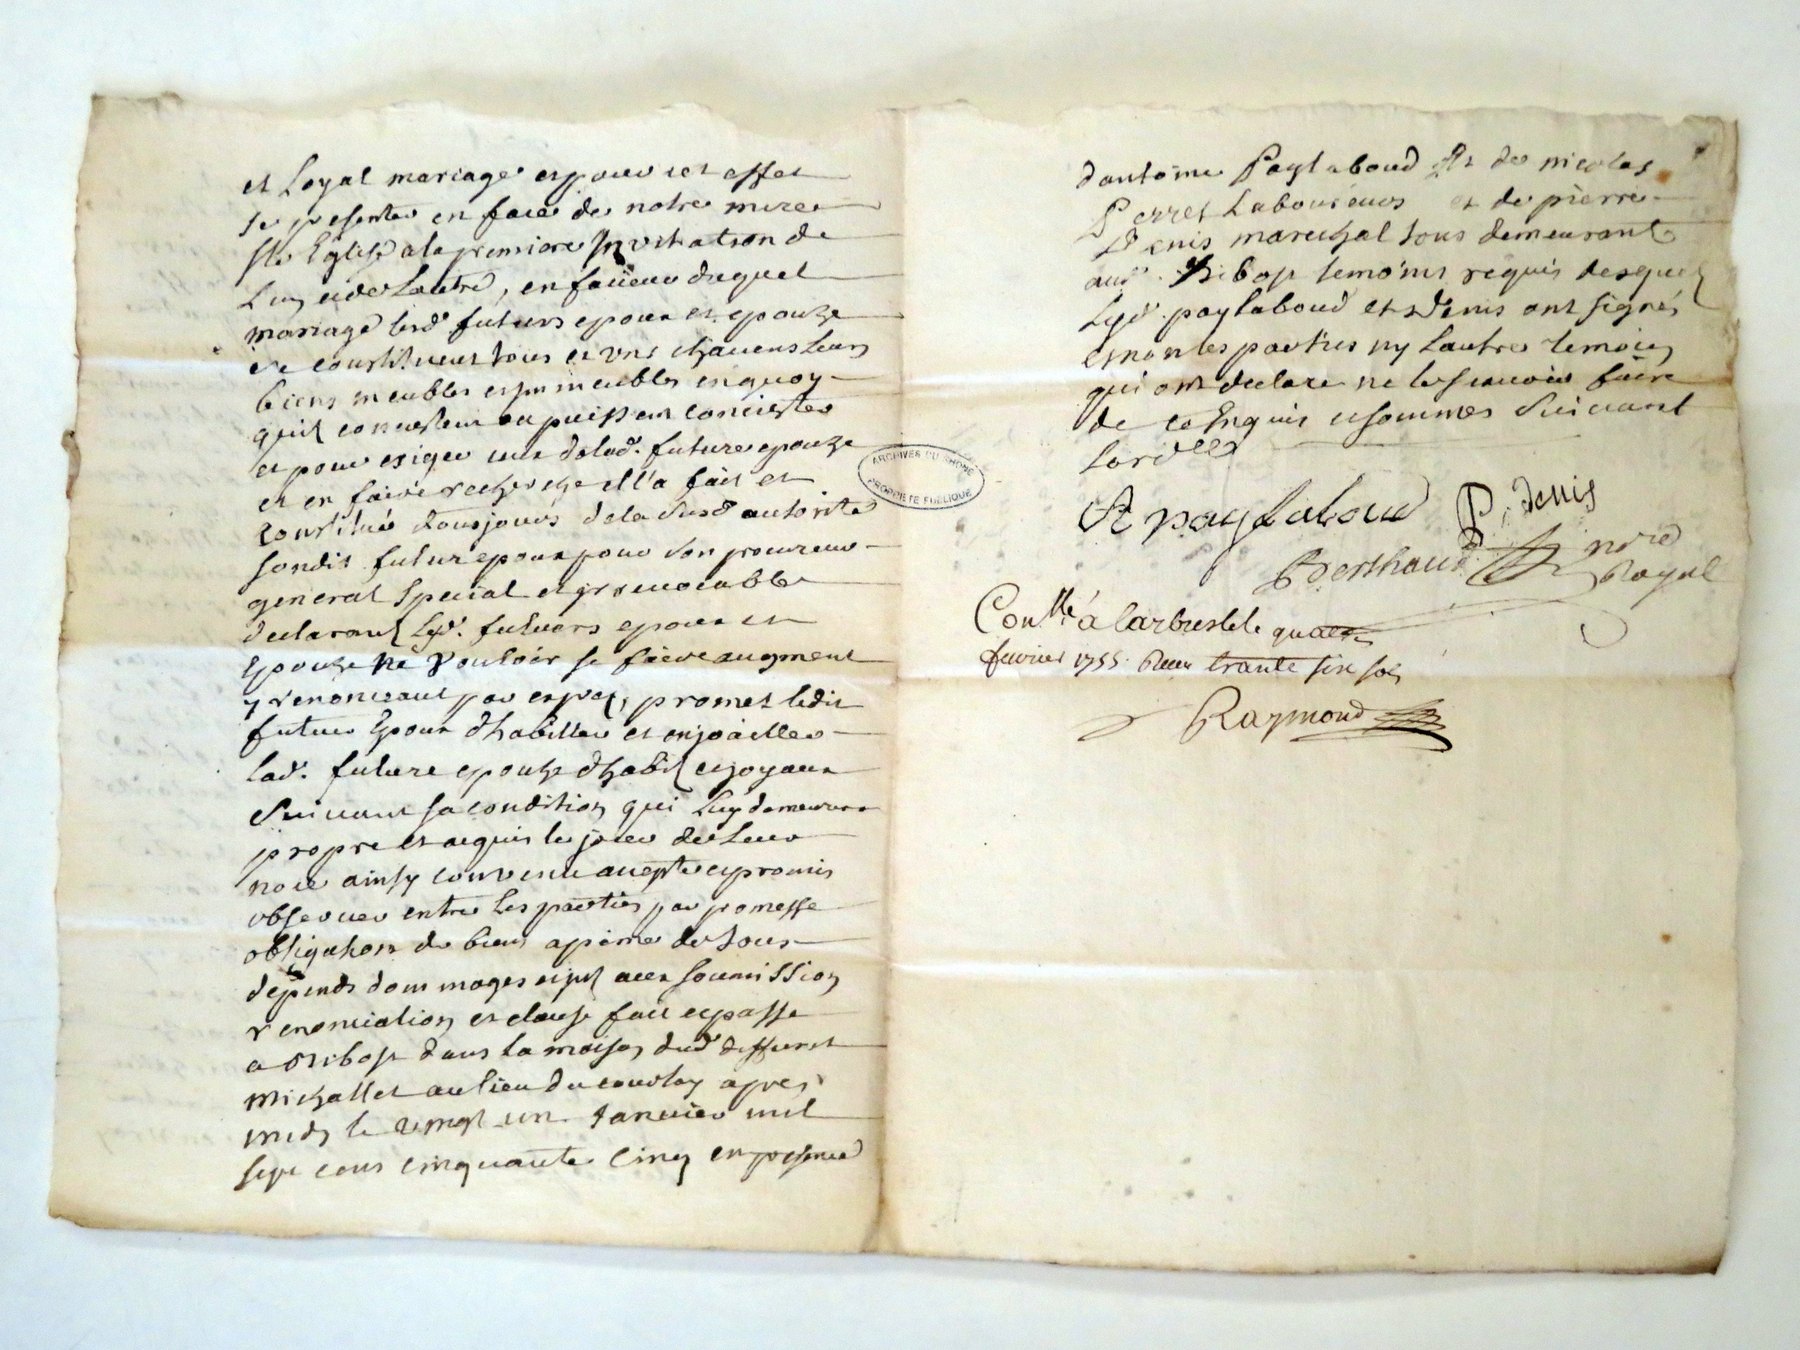 et Loyal mariage et pour cet effet
se presenter en face de notre mere
Ste Eglise a la premiere Invitation de
Lun et de Lautre, en faueur duquel
mariage lesd. futurs epoux et epouze
se constituent tous et uns chacuns leurs
biens meubles et immeubles en quoy
quils consistent ou puissent concister
et pour exiger ceux de lad. future epouze
et en faire recherche elle a fait et
constitué tousjours de la susd autorité
sondit futur epoux pour son procureur
general special et irreuocable
declarant Lesd. futurs epoux et
epouze ne vouloir se faire augment
y renoncant par expres, promet ledit
futur Epoux dhabiller et enjoailler
lad. future epouze dhabits et joyaux
suiuant sa condition qui Luy demeurera
propre et acquis le jour de Leur
noce ainsy conuenu accepté et promis
obseruer entre les parties par promesse
obligation de biens a peine de tous
depends dommages et aux soumission
renonciation et clause fait et passé
a St Ribost dans la maison dud deffunt
Michallet au lieu du après
midy le vingt un Januier mil
sept cens cinquante Cinq en presence
dantoine Paylaboud et de nicolas
Perret Laboureurs et de pierre
Denis marechal tous demeurant
aud. Ribost temoins requis desquels
Led. paylaboud et Denis ont signés
et non les parties ny Lautre temoin
qui ont declaré ne le scauoir faire
de ce Enquis et sommés suiuant
Lord.ce
A paylaboud P. denis
Berthaud nore
Royal
Conllé à Larbresle le quatre
feurier 1755. Receu trante six sols
Raymond
ARCHIVES DU RHÔNE
PROPRIÉTÉ PUBLIQUE